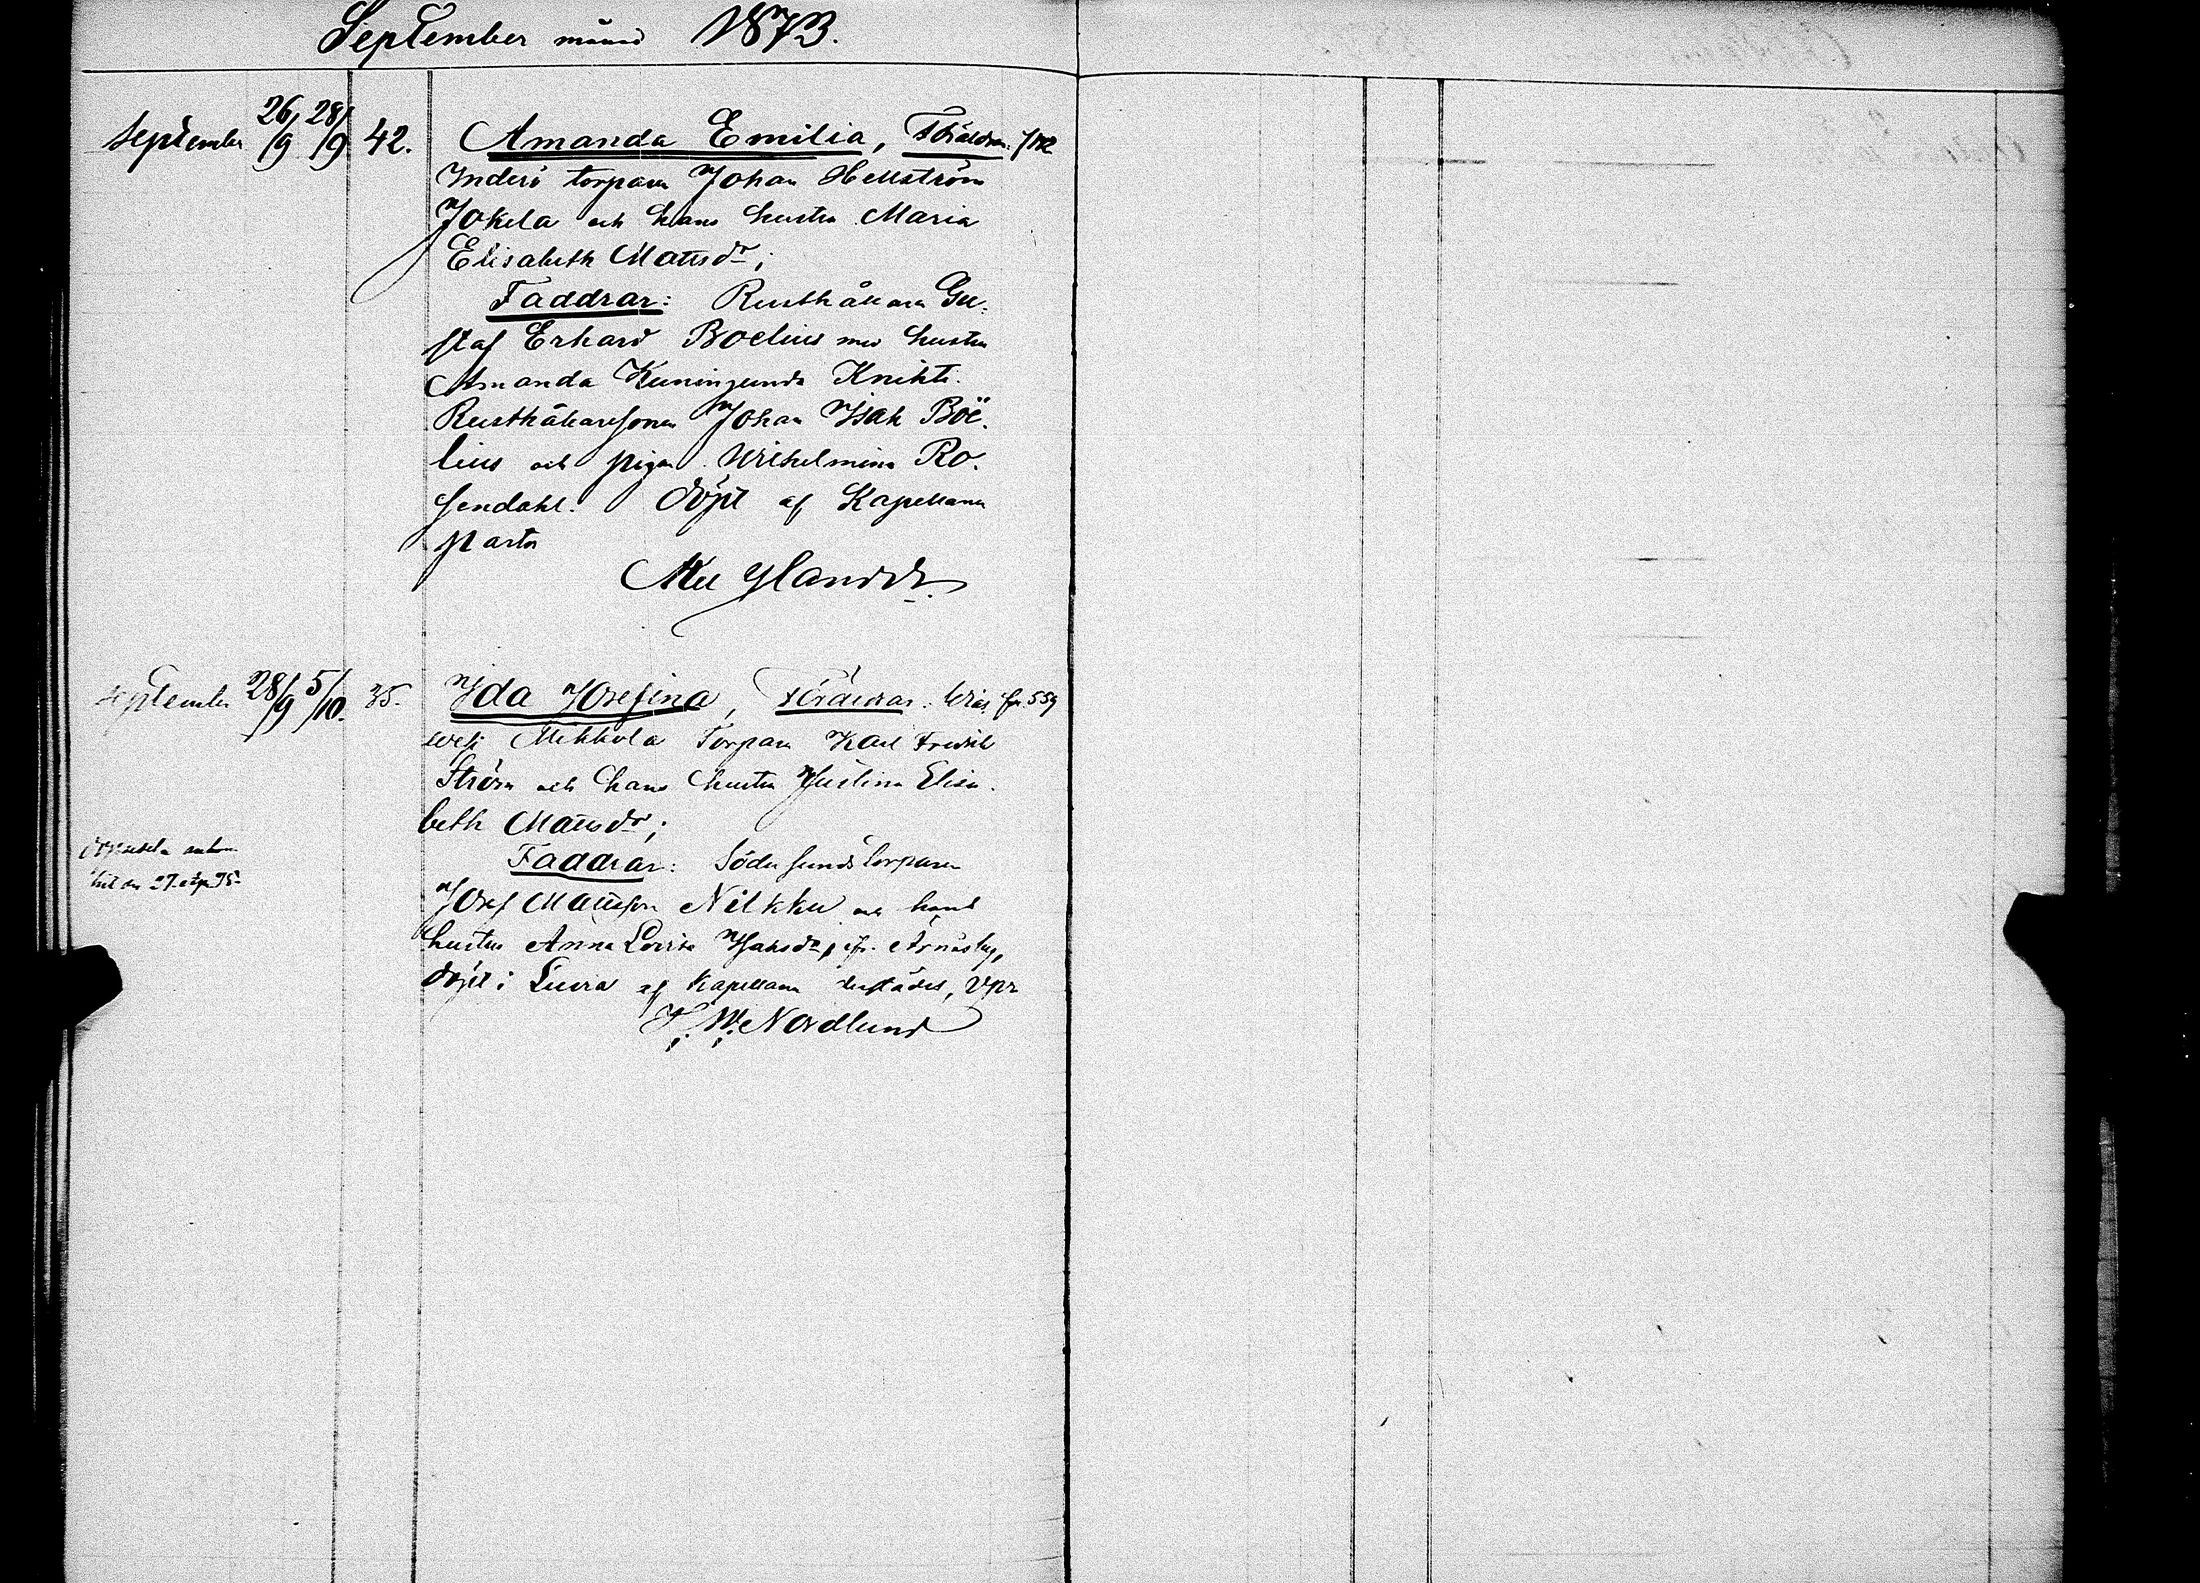 September månad 1873.
September 26/9 28/9 42. Amanda Emilia, Föräldrar:
Inderö torparn Johan Hellström
Jokela och hans hustru Maria
Elisabeth Matsdr;
Faddrar: Rusthållaren Gu-
staf Erhard Boelius med hustru
Amanda Kuningunda Knihti.
Rusthållaresonen Johan Isak Böe-
lius och pigan Wilhelmina Ro-
sendahl. Döpt af Kapellanen
pastor
September 28/9 5/10. 35. Ida Josefina, Föräldrar: 559
Mikkola Torparn Karl Fredrik
Ström och hans hustru Justina Elisa-
beth Matsdr;
den 27
Faddrar: Södersunds torparen
Josef Mattsson Nilkku och hans
hustru Anna Lovisa Isaksdr,
döpt i Luvia af Kapellanen derstädes, vpr
F. W. Nordlund